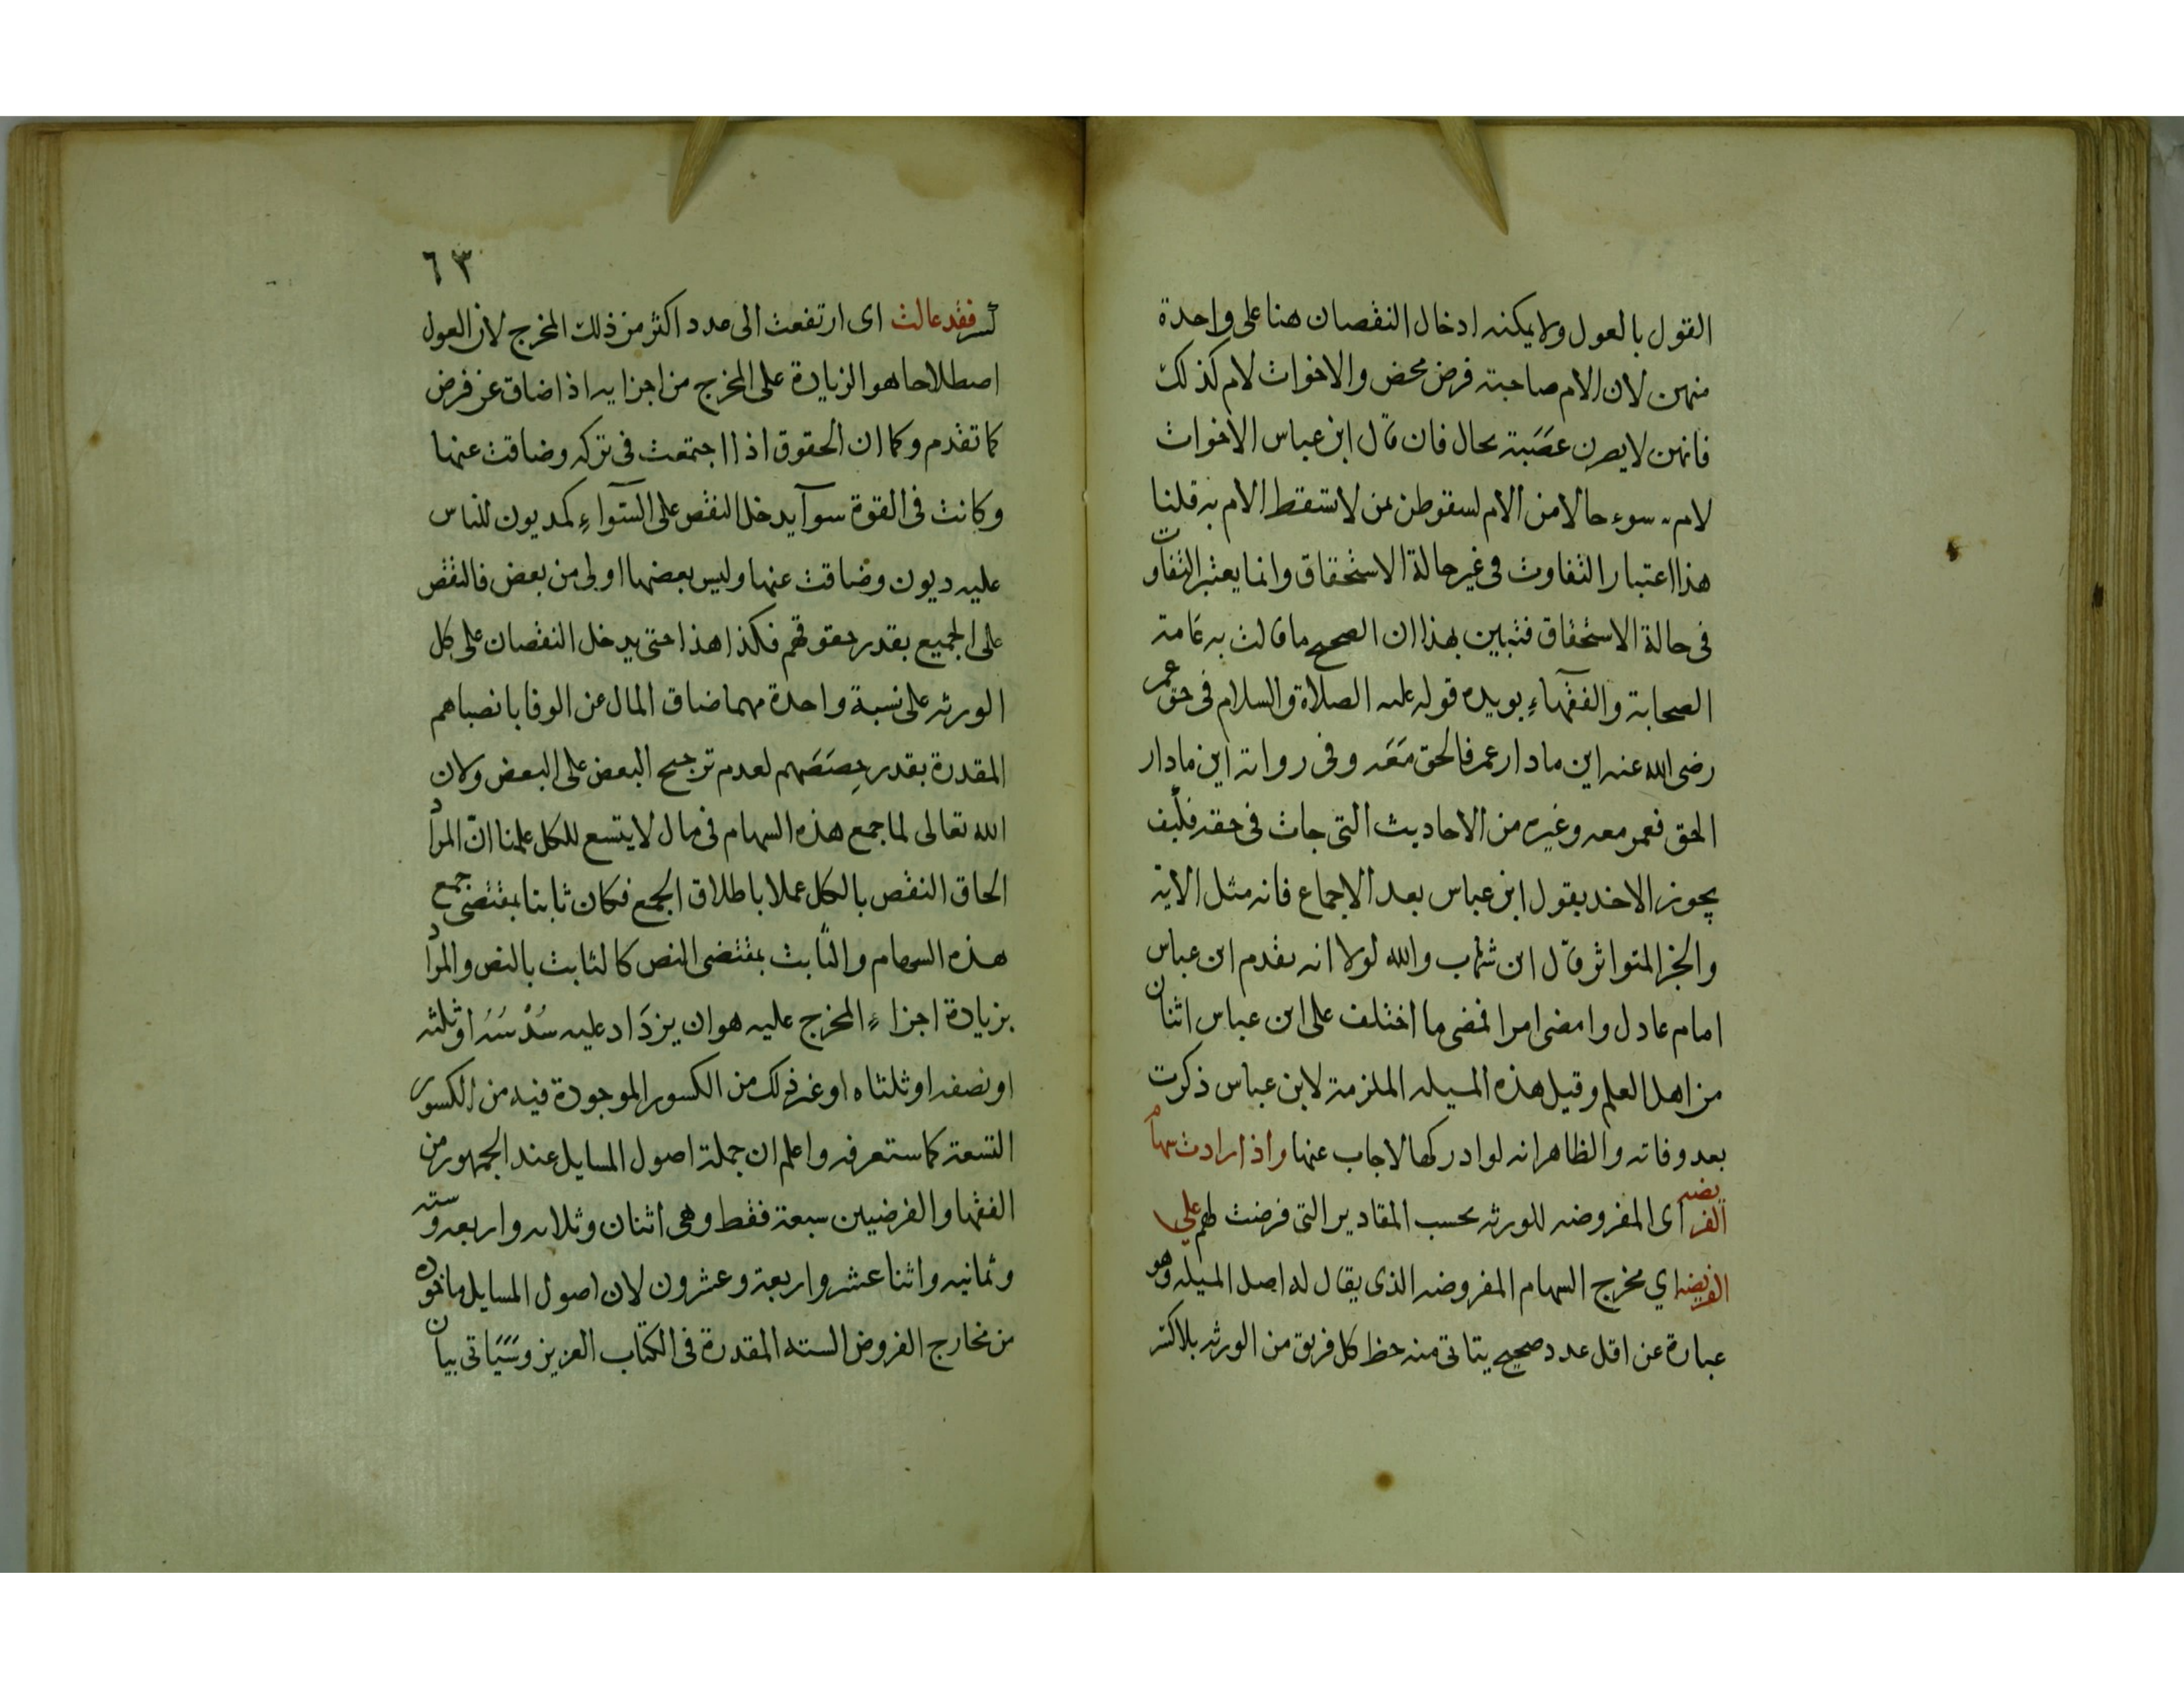 القول بالعول ولا يمكنه ادخال النقصان هنا على واحدة
منهن لان الام صاحبة فرض محض والاخوات لام كذلك
فانهن لا يصرن عصبة بحال فان قال ابن عباس الاخوات
لام سوء حالا من الام لسقوطهن بمن لا تسقط الام به قلنا
هذا اعتبار التفاوت في غير حالة الاستحقاق وانما يعتبر التفاوت
في حالة الاستحقاق فتبين بهذا ان الصحيح ما قالت به عامة
الصحابة والفقهاء يويده قوله عليه الصلاة والسلام في حق عمر
رضى الله عنه اين ما دار عمر فالحق معه وفي رواية اين ما دار
الحق فعمر معه وغيره من الاحاديث التي جات في حقه فكيف
يجوز الاخد بقول ابن عباس بعد الاجماع فانه مثل الاية
والخبر المتواتر قال ابن شهاب والله لولا انه تقدم ابن عباس
امام عادل وامضى امرا فمضى ما اختلف على ابن عباس اثنان
من اهل العلم وقيل هذه المسيله الملزمة لابن عباس ذكرت
بعد وفاته والظاهر انه لو ادركها لاجاب عنها واذا زادت سهام
الفريضه اى المفروضه للورثه بحسب المقادير التي فرضت لهم على
الفريضه اي مخرج السهام المفروضه الذي يقال له اصل المسيله وهو
عبارة عن اقل عدد صحيح يتاتى منه حظ كل فريق من الورثه بلا كسر
٦٣
كسر فقد عالت اى ارتفعت الى عدد اكثر من ذلك المخرج لان العول
اصطلاحا هو الزيادة على المخرج من اجزايه اذا ضاق عن فرض
كما تقدم وكما ان الحقوق اذا اجتمعت في تركه وضاقت عنها
وكانت في القوة سوآ يدخل النقص على السوآء كمديون للناس
عليه ديون وضاقت عنها وليس بعضها اولى من بعض فالنقص
على الجميع بقدر حقوقهم فكذا هذا حتى يدخل النقصان على كل
الورثه على نسبة واحدة مهما ضاق المال عن الوفا بانصباهم
المقدرة بقدر حصصهم لعدم ترجيح البعض على البعض ولان
الله تعالى لما جمع هذه السهام في مال لا يتسع للكل علمنا ان المراد
الحاق النقص بالكل عملا باطلاق الجمع فكان ثابتا بمقتضى جمع
هذه السهام والثابت بمقتضى النص كالثابت بالنص والمراد
بزيادة اجزاء المخرج عليه هو ان يزداد عليه سدسه او ثلثه
او نصفه او ثلثاه او غير ذلك من الكسور الموجودة فيه من الكسور
التسعة كما ستعرفه واعلم ان جملة اصول المسايل عند الجمهور من
الفقها والفرضيين سبعة فقط وهي اثنان وثلاثه واربعه وسته
وثمانيه واثنا عشر واربعة وعشرون لان اصول المسايل ماخوذه
من مخارج الفروض السته المقدرة في الكتاب العزيز وسياتى بيان